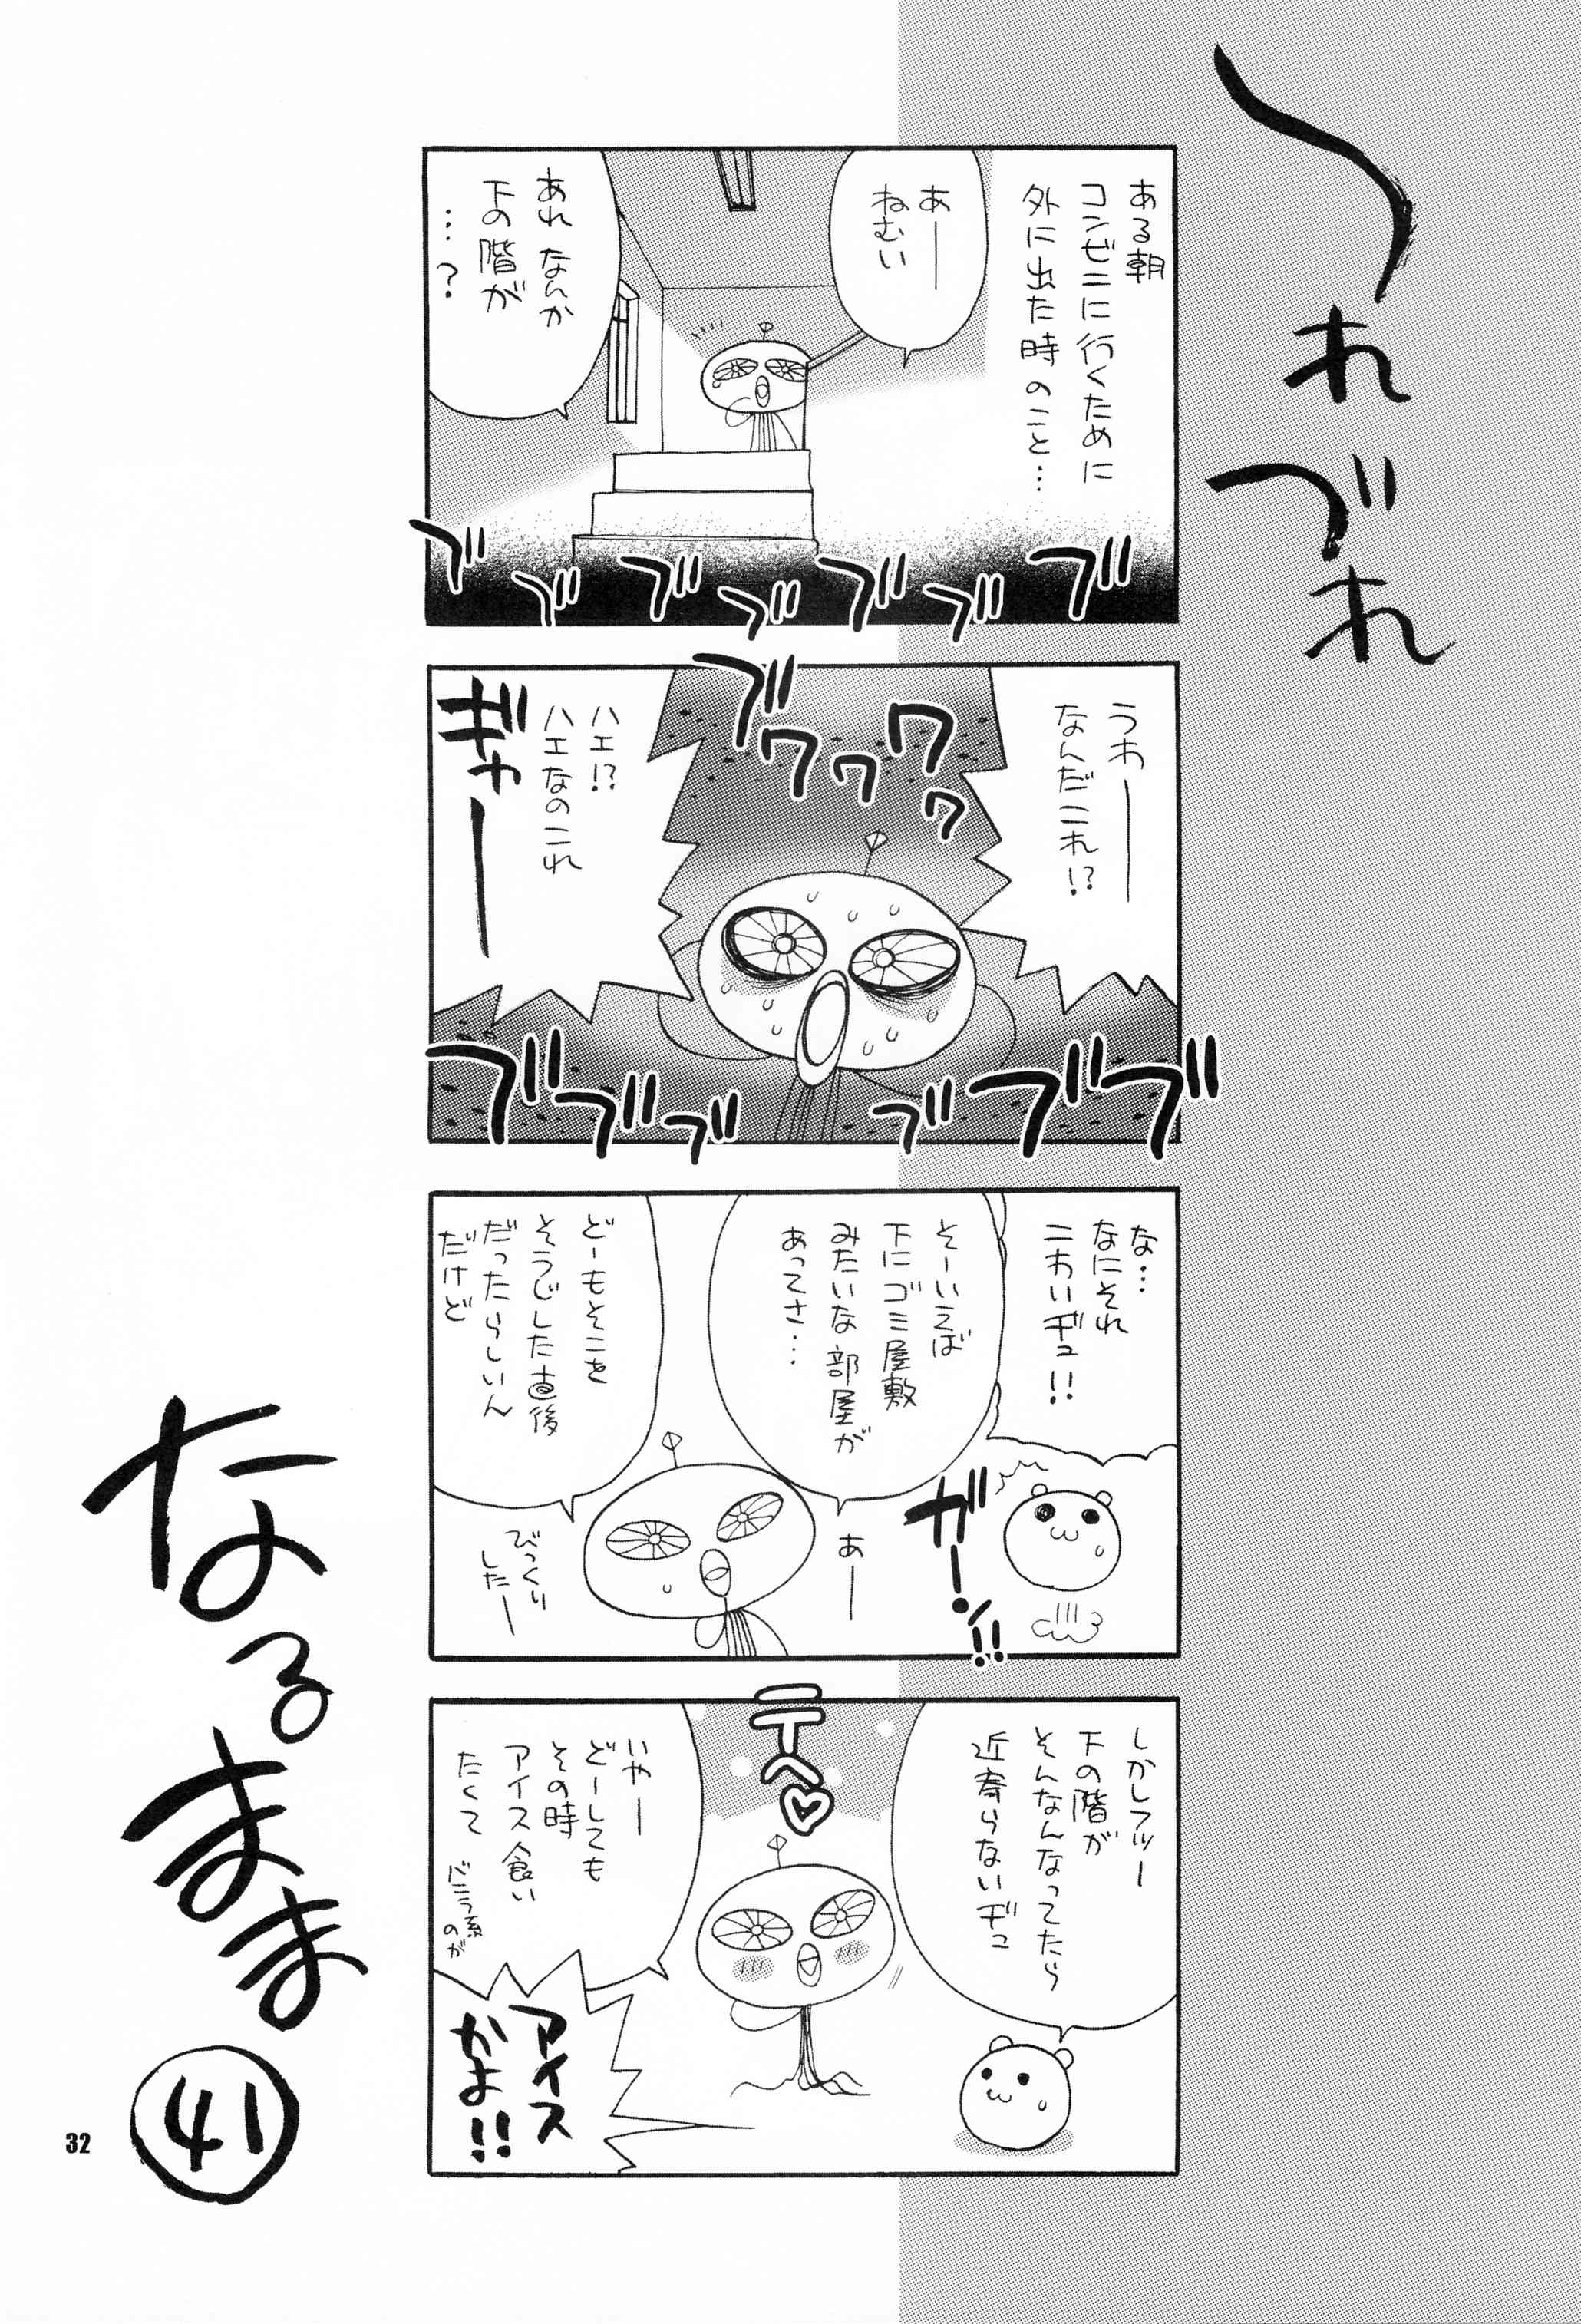 つれづれ
ある朝
コンビニに行くために
外に出た時のこと…
あ──
ねむい
あれ なんか
下の階が
…？
ブ
ブ
ブ
ブ
ブ
ブ
ブ
うわ──
なんだこれ!?
ハエ!?
ハエなのこれ
ギャ──
ブ
ワ
ワ
ワ
ワ
ワ
ブ
ブ
ブ
ブ
ブ
ブ
ブ
ブ
な…
なにそれ
こわいヂュ!!
ガーン!!
そーいえば
下にゴミ屋敷
みたいな部屋が
あってさ…
あ──
どーもそこを
そうじした直後
だったらしいん
だけど
びっくり
した──
しかしフツー
下の階が
そんなんなってたら
近寄らないヂュ
テヘ♡
いや──
どーしても
その時
アイス食い
たくて
バニラ系
のが
アイス
かよ!!
なるまま
㊶
32